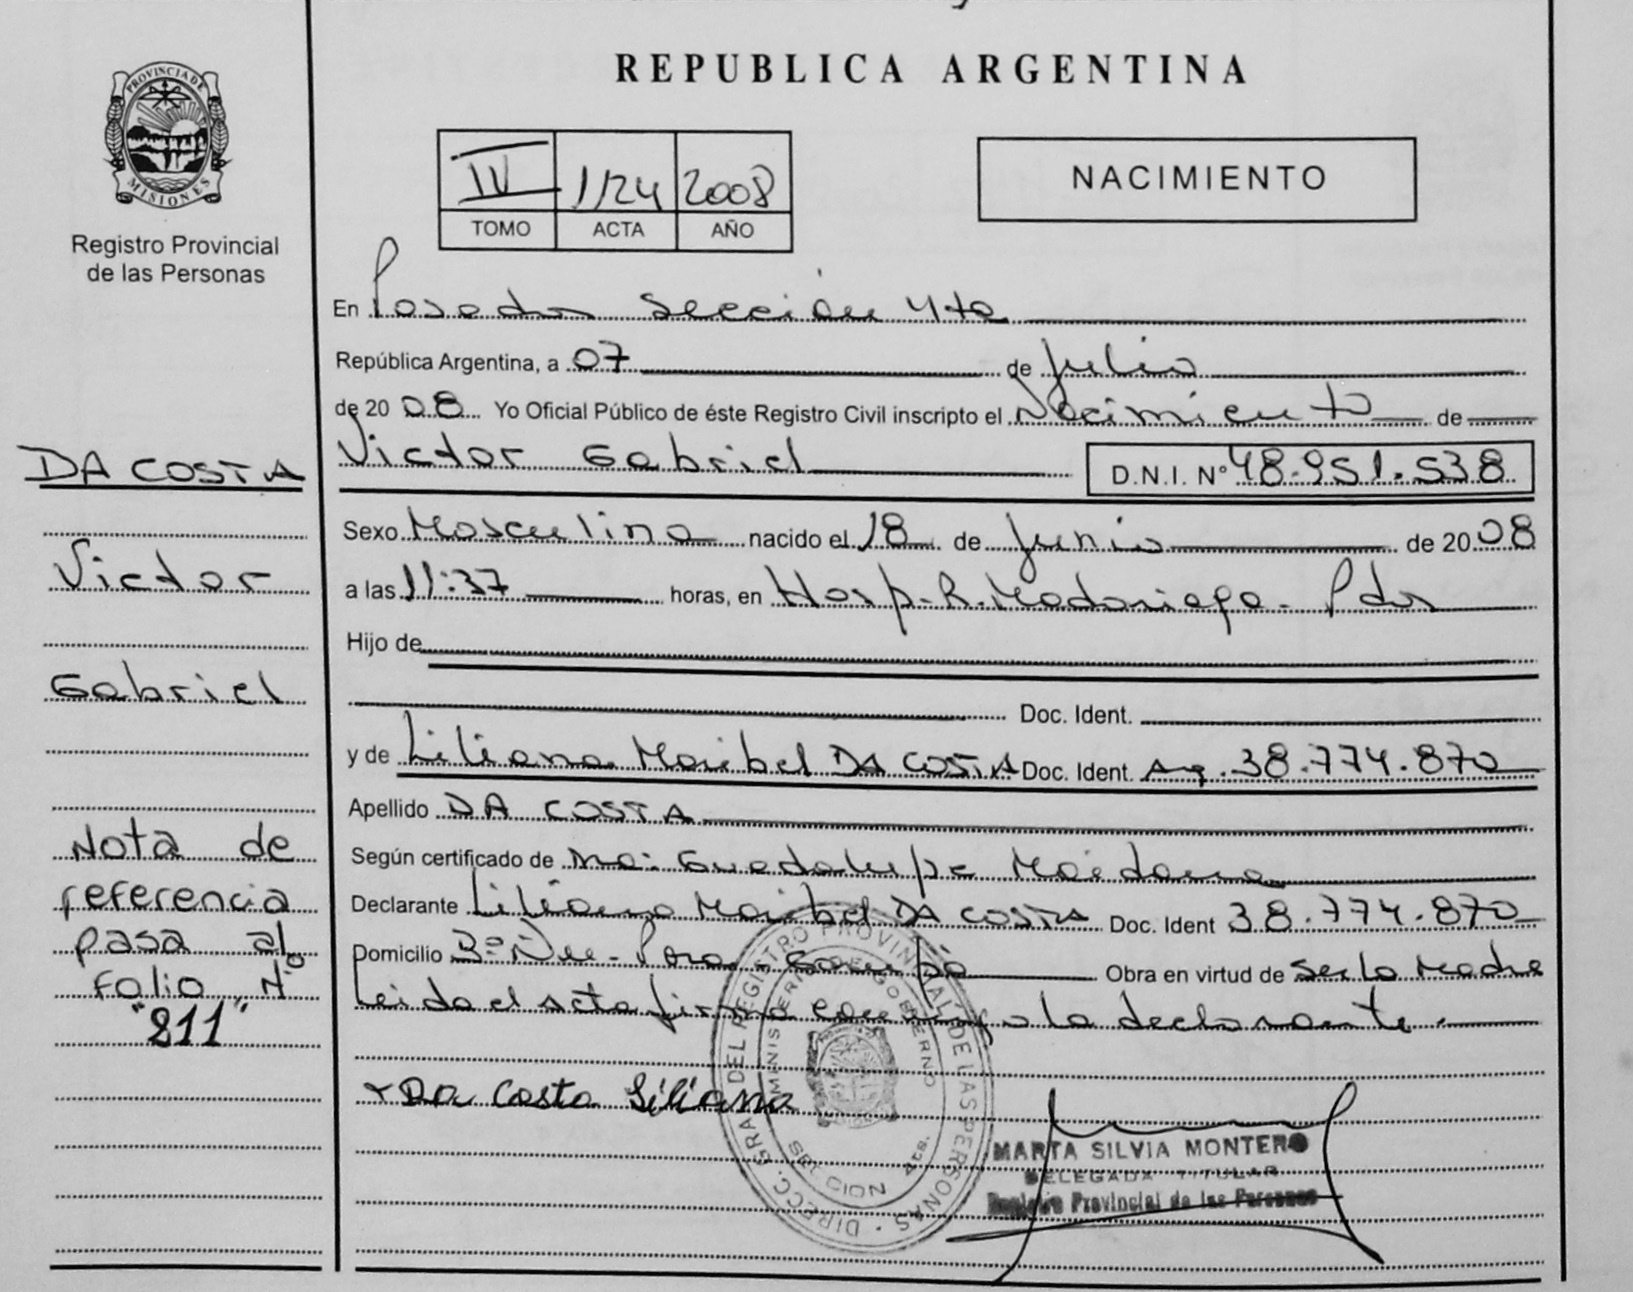 REPUBLICA ARGENTINA
PROVINCIA DE
MISIONES
Registro Provincial
de las Personas
IV 1124 2008
TOMO ACTA AÑO
NACIMIENTO
En Posadas Sección 4ta
República Argentina, a 07 de Julio
de 2008 Yo Oficial Público de éste Registro Civil inscripto el Nacimiento de
Victor Gabriel D.N.I. N° 48.951.538
Sexo Masculino nacido el 18 de Junio de 2008
a las 11:37 horas, en Hosp. R. Madariaga - Pdas
Hijo de
Doc. Ident.
y de Liliana Maribel DA COSTA Doc. Ident. Arg. 38.774.870
Apellido DA COSTA
Según certificado de Ma: Guadalupe Maidana
Declarante Liliana Maribel DA COSTA Doc. Ident 38.774.870
Domicilio Obra en virtud de ser la Madre
Leida el acta firma conmigo la declarante.
Da Costa Liliana
DIRECC. GRAL DEL REGISTRO PROVINCIAL DE LAS PERSONAS
MINISTERIO DE GOBIERNO
MARTA SILVIA MONTERO
DELEGADA TITULAR
Registro Provincial de las Personas
DA COSTA
Victor
Gabriel
Nota de
referencia
pasa al
Folio N°
"811"